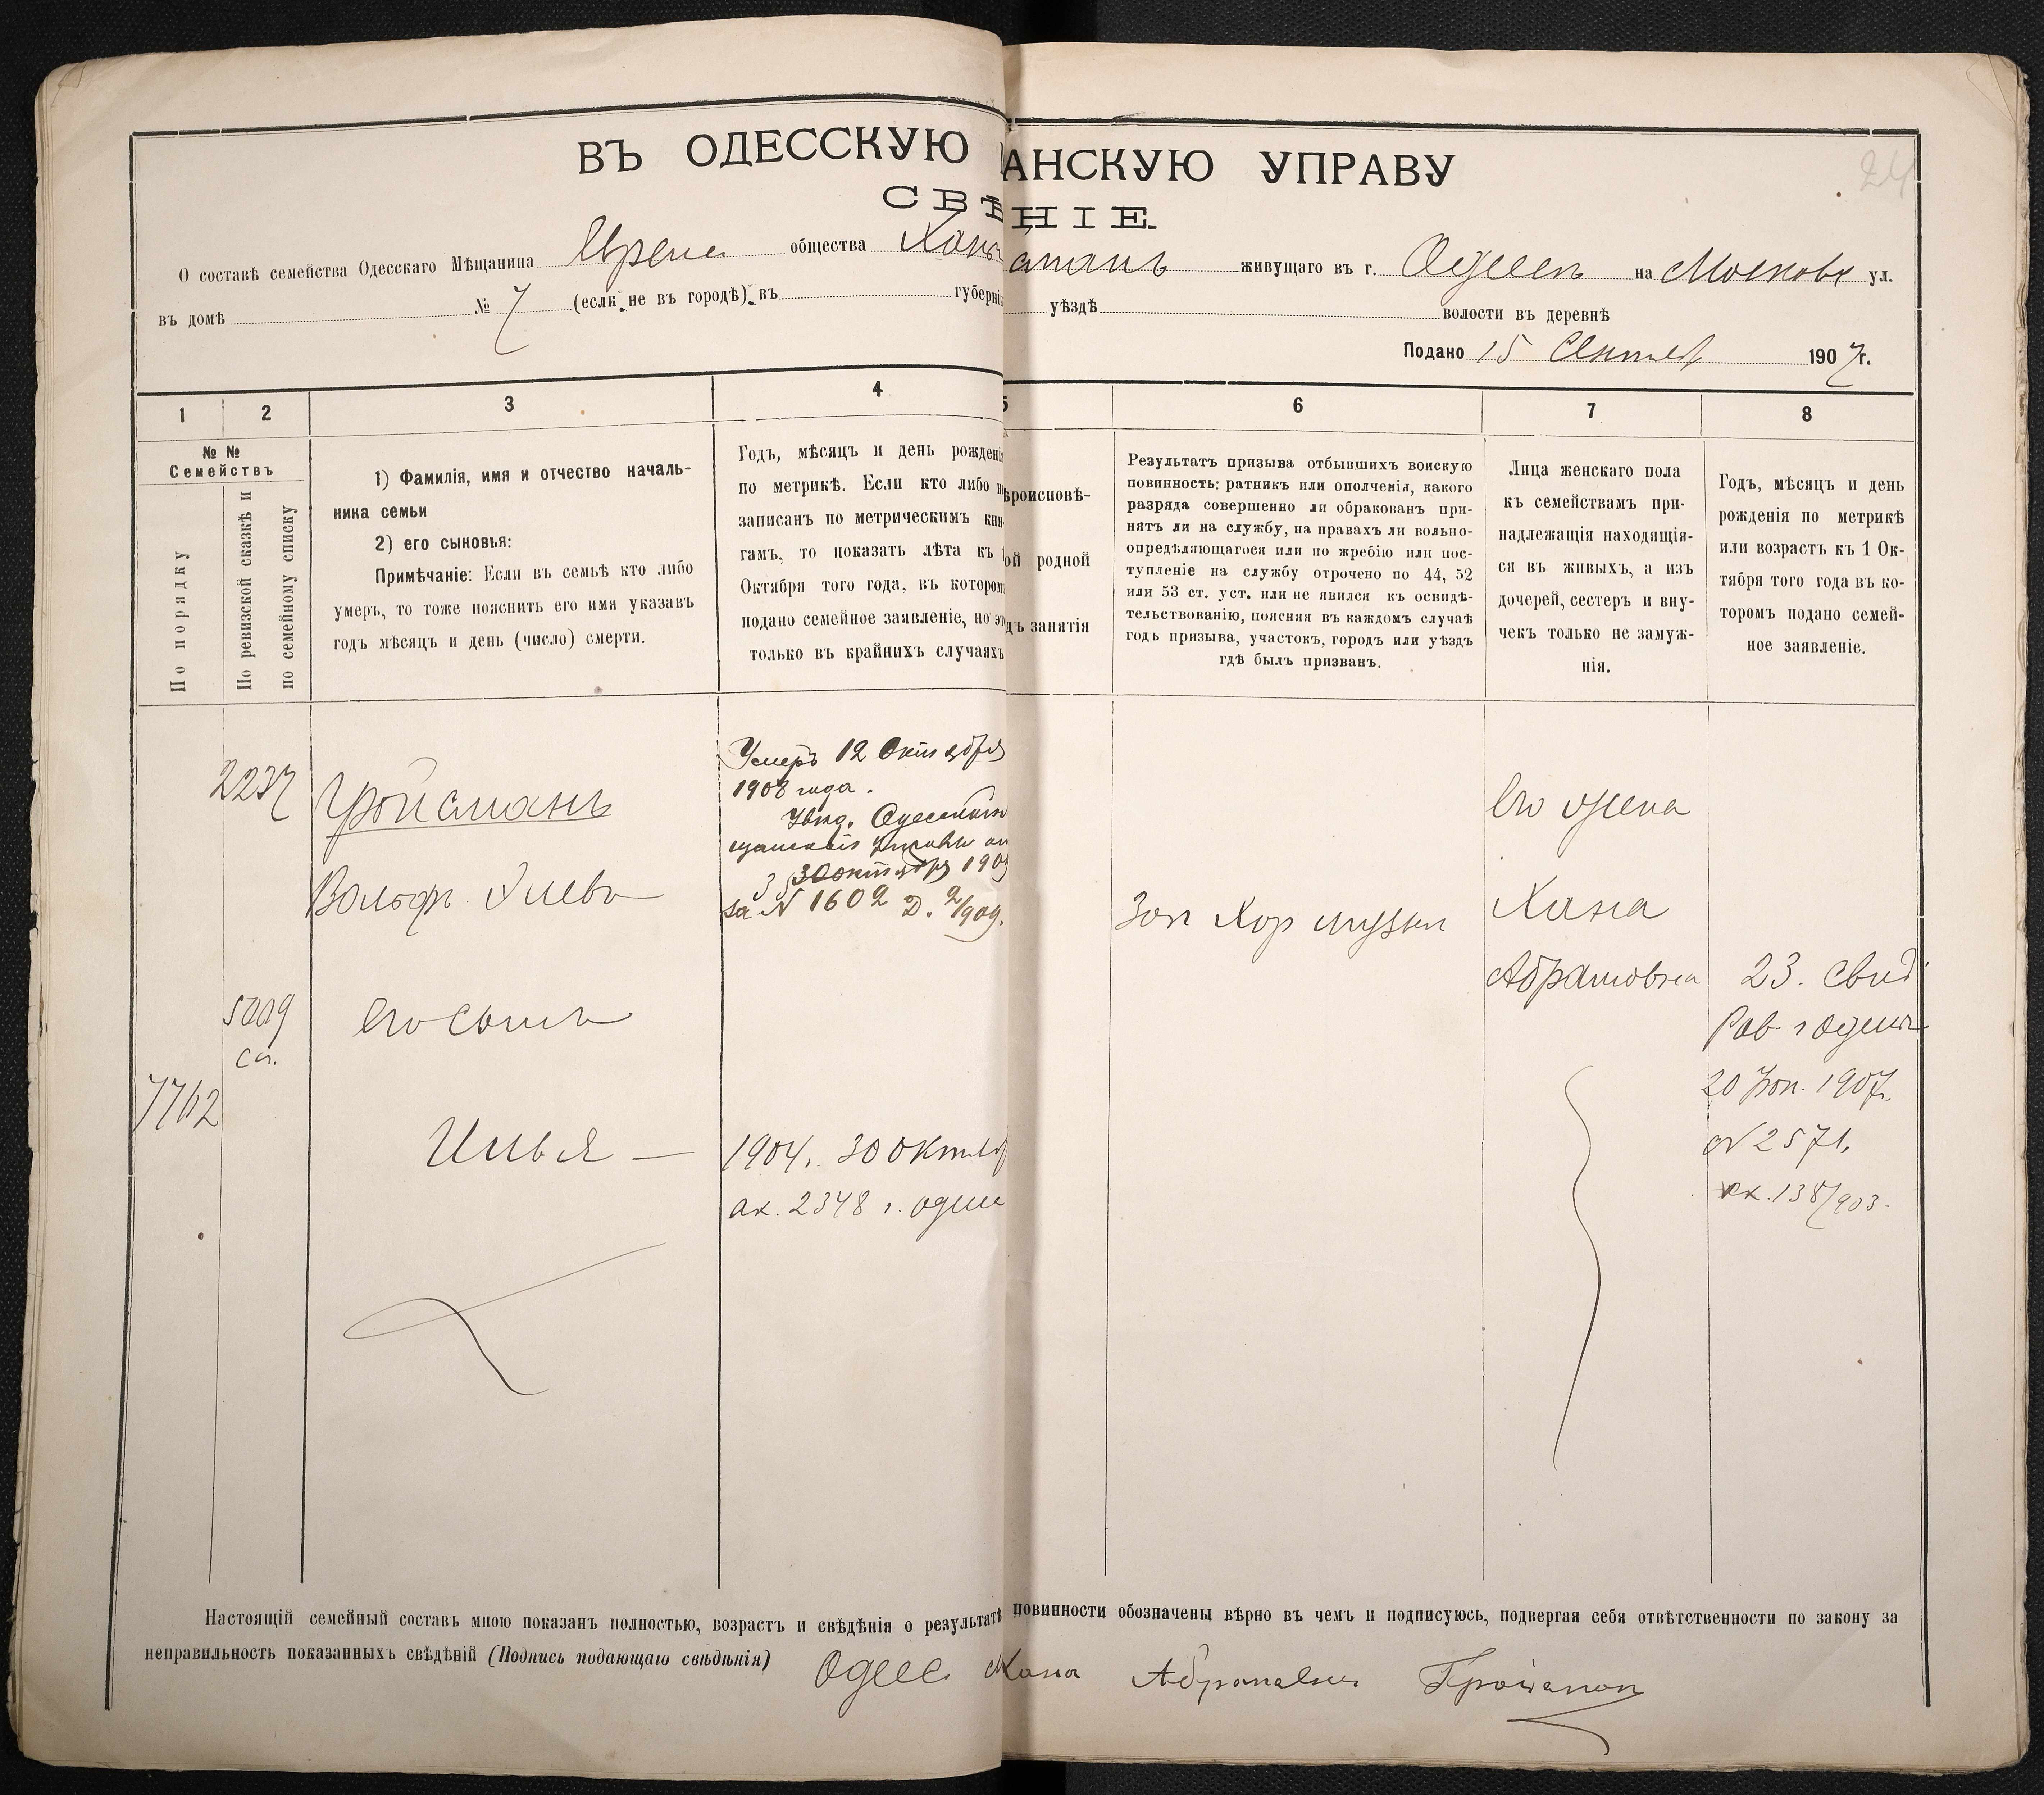 ВЪ ОДЕССКУЮ АНСКУЮ УПРАВУ
24
СВѢ НІЕ.
О составѣ семейства Одесскаго Мѣщанина Евреи общества живущаго въ г. Одессѣ на Московск ул.
въ домѣ № 7 (если не въ городѣ) въ губерні уѣздѣ волости въ деревнѣ
Подано 15 Сентяб 1907 г.
1 2 3 4 5 6 7 8
№ №
Семействъ
По порядку
По ревизской сказкѣ и
по семейному списку
1) Фамилія, имя и отчество началь-
ника семьи
2) его сыновья:
Примѣчаніе: Если въ семьѣ кто либо
умеръ, то тоже пояснить его имя указавъ
годъ мѣсяцъ и день (число) смерти.
Годъ, мѣсяцъ и день рожденія
по метрикѣ. Если кто либо не
записанъ по метрическимъ кни-
гамъ, то показать лѣта къ 1
Октября того года, въ которомъ
подано семейное заявленіе, но эт
только въ крайнихъ случаяхъ
ѣроисповѣ-
ой родной
дъ занятія
Результатъ призыва отбывшихъ воискую
повинность: ратникъ или ополченія, какого
разряда совершенно ли обракованъ при-
нятъ ли на службу, на правахъ ли вольно-
опредѣляющагося или по жребію или пос-
тупленіе на службу отрочено по 44, 52
или 53 ст. уст. или не явился къ освидѣ-
тельствованію, поясняя въ каждомъ случаѣ
годъ призыва, участокъ, городъ или уѣздъ
гдѣ былъ призванъ.
Лица женскаго пола
къ семействамъ при-
надлежащія находящія-
ся въ живыхъ, а изъ
дочерей, сестеръ и вну-
чекъ только не замуж-
нія.
Годъ, мѣсяцъ и день
рожденія по метрикѣ
или возрастъ къ 1 Ок-
тября того года въ ко-
торомъ подано семей-
ное заявленіе.
2237
Гройсманъ
Вольфъ Илевъ
Умеръ 12 Октября
1908 года.
Увѣд. Одесской
щанской управы от
30 октября 190
за N 1602 Д. 2/909.
Его жена
Хана
Абрамовна
23. Свид
Рав г Одессы
20 1907.
N 2571.
ак. 138/903.
5009
сп.
Его сынъ
7762
Илья —
1904. 30 Октяб
ак. 2348 г. Одесс
Настоящій семейный составъ мною показанъ полностью, возрастъ и свѣдѣнія о результатѣ повинности обозначены вѣрно въ чемъ и подписуюсь, подвергая себя отвѣтственности по закону за
неправильность показанныхъ свѣдѣній (Подпись подающаго свѣдѣнія) Одесс Хана Абрамовна Гройсман